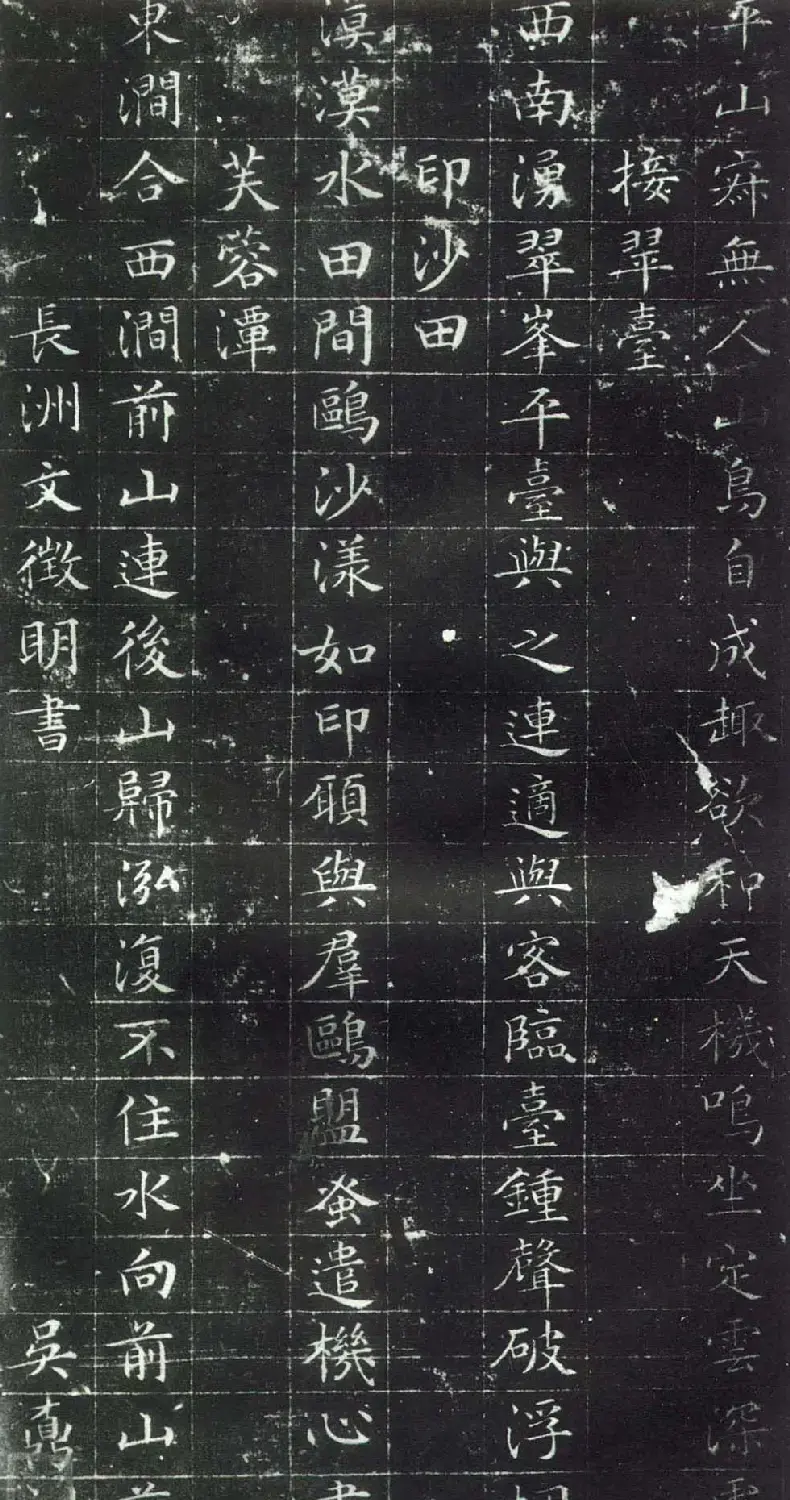 平山寂無人山鳥自成趣欲和天機鳴坐定雲深
接翠臺
西南湧翠峯平臺與之連適與客臨臺鍾聲破浮
印沙田
漠漠水田間鷗沙漾如印願與羣鷗盟蚤遣機心
芙蓉潭
東澗合西澗前山連後山歸泓復不住水向前山
長洲文徵明書 吳鼒